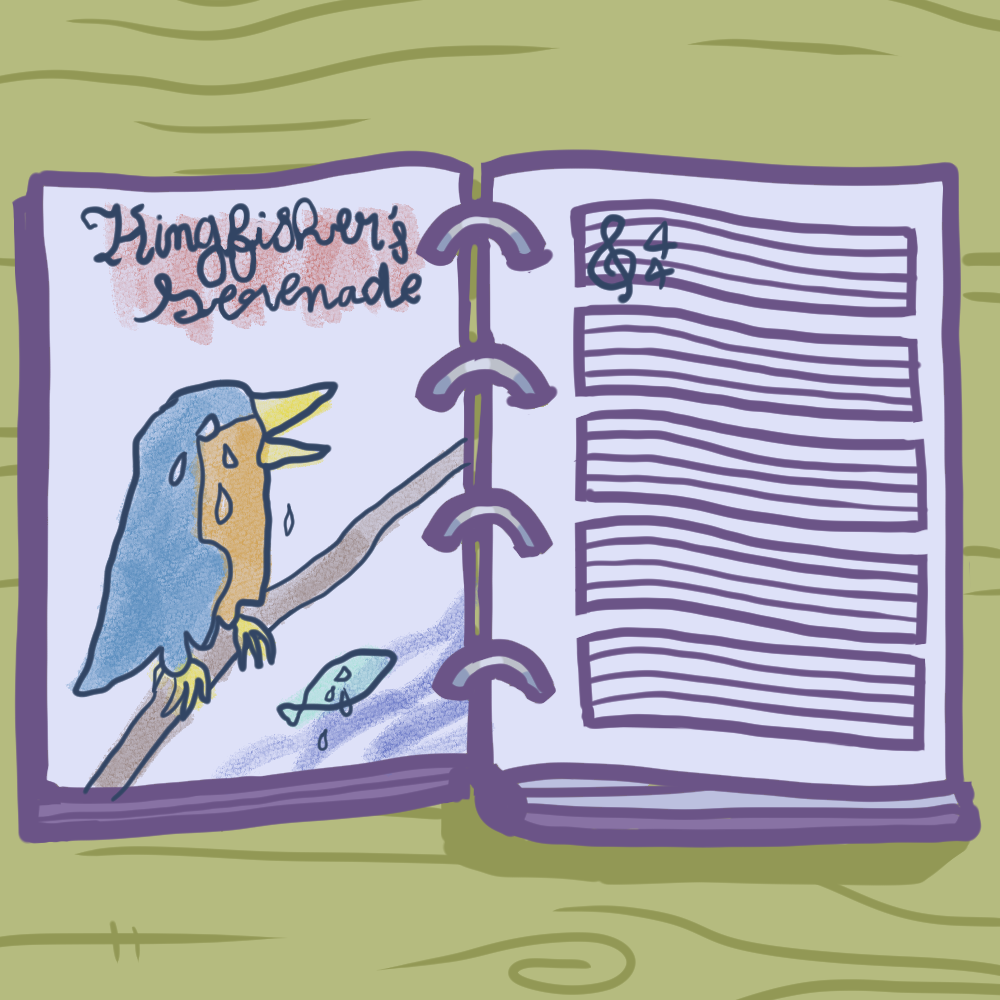 Kingfisher's
Serenade
4
4